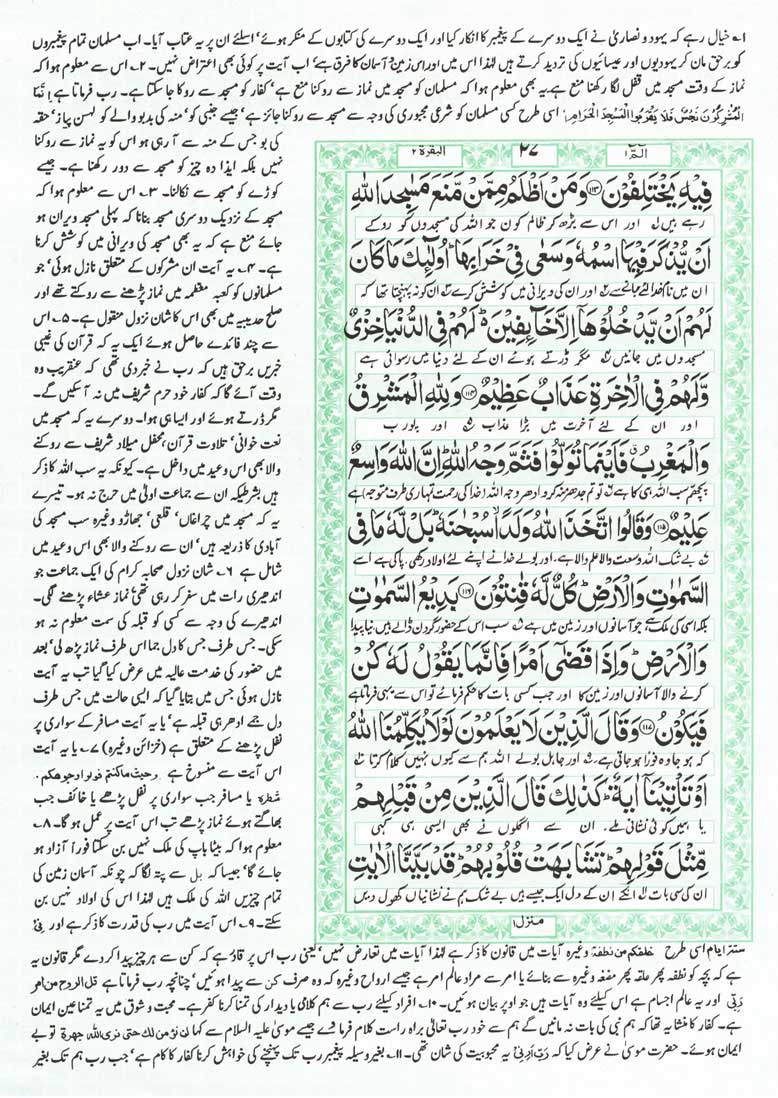 ۱۔ خیال رہے کہ یہود و نصاریٰ نے ایک دوسرے کے پیغمبر کا انکار کیا اور ایک دوسرے کی کتابوں کے منکر ہوئے' اسلئے ان پر یہ عتاب آیا۔ اب مسلمان تمام پیغمبروں
کو برحق مان کر یہودیوں اور عیسائیوں کی تردید کرتے ہیں لہٰذا اس میں اور اس میں زمین و آسمان کا فرق ہے' اب آیت پر کوئی بھی اعتراض نہیں۔ ۲۔ اس سے معلوم ہوا کہ
نماز کے وقت مسجد میں قفل لگا رکھنا منع ہے یہ بھی معلوم ہوا کہ مسلمان کو مسجد سے روکنا منع ہے' کفار کو مسجد سے روکا جا سکتا ہے۔ رب فرماتا ہے اِنَّمَا
الْمُشْرِكُوْنَ نَجَسٌ فَلَا يَقْرَبُوا الْمَسْجِدَ الْحَرَامَ اسی طرح کسی مسلمان کو شرعی مجبوری کی وجہ سے مسجد سے روکنا جائز ہے' جیسے جنبی کو' منہ کی بدبو والے کو لہسن پیاز' حقہ
کی بو جس کے منہ سے آ رہی ہو اس کو یہ نماز سے روکنا
نہیں بلکہ ایذا دہ چیز کو مسجد سے دور رکھنا ہے۔ جیسے
کوڑے کو مسجد سے نکالنا۔ ۳۔ اس سے معلوم ہوا کہ
مسجد کے نزدیک دوسری مسجد بنانا کہ پہلی مسجد ویران ہو
جائے منع ہے کہ یہ بھی مسجد کی ویرانی میں کوشش کرنا
ہے۔ ۴۔ یہ آیت ان مشرکوں کے متعلق نازل ہوئی' جو
مسلمانوں کو کعبہ معظمہ میں نماز پڑھنے سے روکتے تھے اور
صلح حدیبیہ میں بھی اس کا شان نزول منقول ہے۔ ۵۔ اس
سے چند فائدے حاصل ہوئے ایک یہ کہ قرآن کی غیبی
خبریں برحق ہیں کہ رب نے خبر دی تھی کہ عنقریب وہ
وقت آئے گا کہ کفار خود حرم شریف میں نہ آ سکیں گے۔
مگر ڈرتے ہوئے اور ایسا ہی ہوا۔ دوسرے یہ کہ مسجد میں
نعت خوانی' تلاوت قرآن' محفل میلاد شریف سے روکنے
والا بھی اس وعید میں داخل ہے۔ کیونکہ یہ سب اللہ کا ذکر
ہیں بشرطیکہ ان سے جماعت اولیٰ میں حرج نہ ہو۔ تیسرے
یہ کہ مسجد میں چراغاں' قلعی' جھاڑو وغیرہ سب مسجد کی
آبادی کا ذریعہ ہیں' ان سے روکنے والا بھی اس وعید میں
شامل ہے ۶۔ شان نزول صحابہ کرام کی ایک جماعت جو
اندھیری رات میں سفر کر رہی تھی' نماز عشاء پڑھنے لگی۔
اندھیرے کی وجہ سے کسی کو قبلہ کی سمت معلوم نہ ہو
سکی۔ جس طرف جس کا دل جما اس طرف نماز پڑھ لی' بعد
میں حضور کی خدمت عالیہ میں عرض کیا گیا تب یہ آیت
نازل ہوئی جس میں بتایا گیا کہ ایسی حالت میں جس طرف
دل جمے ادھر ہی قبلہ ہے' یا یہ آیت مسافر کے سواری پر
نفل پڑھنے کے متعلق ہے (خزائن وغیرہ) ۷۔ یا یہ آیت
اس آیت سے منسوخ ہے وحیث ماکنتم فولوا وجوھکم
شطرہ یا مسافر جب سواری پر نفل پڑھے یا خائف جب
بھاگتے ہوئے نماز پڑھے تب اس آیت پر عمل ہو گا۔ ۸۔
معلوم ہوا کہ بیٹا باپ کی ملک نہیں بن سکتا فوراً آزاد ہو
جائے گا' جیسا کہ بل سے پتہ لگا کہ چونکہ آسمان زمین کی
تمام چیزیں اللہ کی ملک ہیں لہٰذا اس کی اولاد نہیں بن
سکتے۔ ۹۔ اس آیت میں رب کی قدرت کا ذکر ہے اور فی
البقرة ٢
٢٧
الٓمّٓ ١
فِيْهِ يَخْتَلِفُوْنَ ﴿۱۱۳﴾ وَمَنْ اَظْلَمُ مِمَّنْ مَّنَعَ مَسٰجِدَ اللّٰهِ
رہے ہیں ۱ اور اس سے بڑھ کر ظالم کون جو اللہ کی مسجدوں کو روکے
اَنْ يُّذْكَرَ فِيْهَا اسْمُهٗ وَسَعٰى فِيْ خَرَابِهَا ؕ اُولٰٓئِكَ مَا كَانَ
ان میں نام خدا لئے جانے سے ۲ اور ان کی ویرانی میں کوشش کرے ۳ ان کو نہ پہنچتا تھا کہ
لَهُمْ اَنْ يَّدْخُلُوْهَاۤ اِلَّا خَآئِفِيْنَ ؕ لَهُمْ فِي الدُّنْيَا خِزْيٌ
مسجدوں میں جائیں ۴ مگر ڈرتے ہوئے ان کے لئے دنیا میں رسوائی ہے
وَّلَهُمْ فِي الْاٰخِرَةِ عَذَابٌ عَظِيْمٌ ﴿۱۱۴﴾ وَلِلّٰهِ الْمَشْرِقُ
اور ان کے لئے آخرت میں بڑا عذاب ۵ اور پورب
وَالْمَغْرِبُ ۗ فَاَيْنَمَا تُوَلُّوْا فَثَمَّ وَجْهُ اللّٰهِ ؕ اِنَّ اللّٰهَ وَاسِعٌ
پچھم سب اللہ ہی کا ہے ۶ تو تم جدھر منہ کرو ادھر وجہ اللہ (خدا کی رحمت تمہاری طرف متوجہ) ہے
عَلِيْمٌ ﴿۱۱۵﴾ وَقَالُوا اتَّخَذَ اللّٰهُ وَلَدًا ۙ سُبْحٰنَهٗ ؕ بَلْ لَّهٗ مَا فِي
۷ بے شک اللہ وسعت والا علم والا ہے، اور بولے خدا نے اپنے لئے اولاد رکھی، پاکی ہے اسے
السَّمٰوٰتِ وَالْاَرْضِ ؕ كُلٌّ لَّهٗ قٰنِتُوْنَ ﴿۱۱۶﴾ بَدِيْعُ السَّمٰوٰتِ
بلکہ اسی کی ملک ہے جو آسمانوں اور زمین میں ہے ۸ سب اس کے حضور گردن ڈالے ہیں نیا پیدا
وَالْاَرْضِ ؕ وَاِذَا قَضٰۤى اَمْرًا فَاِنَّمَا يَقُوْلُ لَهٗ كُنْ
کرنے والا آسمانوں اور زمین کا اور جب کسی بات کا حکم فرمائے تو اس سے یہی فرماتا ہے
فَيَكُوْنُ ﴿۱۱۷﴾ وَقَالَ الَّذِيْنَ لَا يَعْلَمُوْنَ لَوْلَا يُكَلِّمُنَا اللّٰهُ
کہ ہو جا وہ فوراً ہو جاتی ہے، ۹ اور جاہل بولے اللہ ہم سے کیوں نہیں کلام کرتا ۱۰
اَوْ تَاْتِيْنَاۤ اٰيَةٌ ؕ كَذٰلِكَ قَالَ الَّذِيْنَ مِنْ قَبْلِهِمْ
یا ہمیں کوئی نشانی ملے، ان سے اگلوں نے بھی ایسی ہی کہی
مِّثْلَ قَوْلِهِمْ ؕ تَشَابَهَتْ قُلُوْبُهُمْ ؕ قَدْ بَيَّنَّا الْاٰيٰتِ
ان کی سی بات ۱۱ انکے ان کے دل ایک جیسے ہیں بے شک ہم نے نشانیاں کھول دیں
منزل ١
ستۃ ایام اسی طرح خلقکم من نطفۃ وغیرہ آیات میں قانون کا ذکر ہے لہٰذا آیات میں تعارض نہیں' یعنی رب اس پر قادر ہے کہ کن سے ہر چیز پیدا کر دے مگر قانون یہ
ہے کہ بچہ کو نطفہ پھر علقہ پھر مضغہ وغیرہ سے بنائے یا امر سے مراد عالم امر ہے جیسے ارواح وغیرہ کہ وہ صرف کن سے پیدا ہوئیں' چنانچہ رب فرماتا ہے قل الروح من امر
ربی اور یہ عالم اجسام ہے اس کیلئے وہ آیات ہیں جو اوپر بیان ہوئیں۔ ۱۰۔ افراد کیلئے رب سے ہم کلامی یا دیدار کی تمنا کرنا کفر ہے۔ محبت و شوق میں یہ تمنا عین ایمان
ہے۔ کفار کا منشا یہ تھا کہ ہم نبی کی بات نہ مانیں گے ہم سے خود رب تعالیٰ براہ راست کلام فرما دے جیسے موسیٰ علیہ السلام سے کہا لن نؤمن لك حتى نرى الله جهرة تو بے
ایمان ہوئے۔ حضرت موسیٰ نے عرض کیا کہ رَبِّ اَرِنِيْ یہ محبوبیت کی شان تھی۔ ۱۱۔ بغیر وسیلہ پیغمبر رب تک پہنچنے کی خواہش کرنا کفار کا کام ہے' جب رب ہم تک بغیر